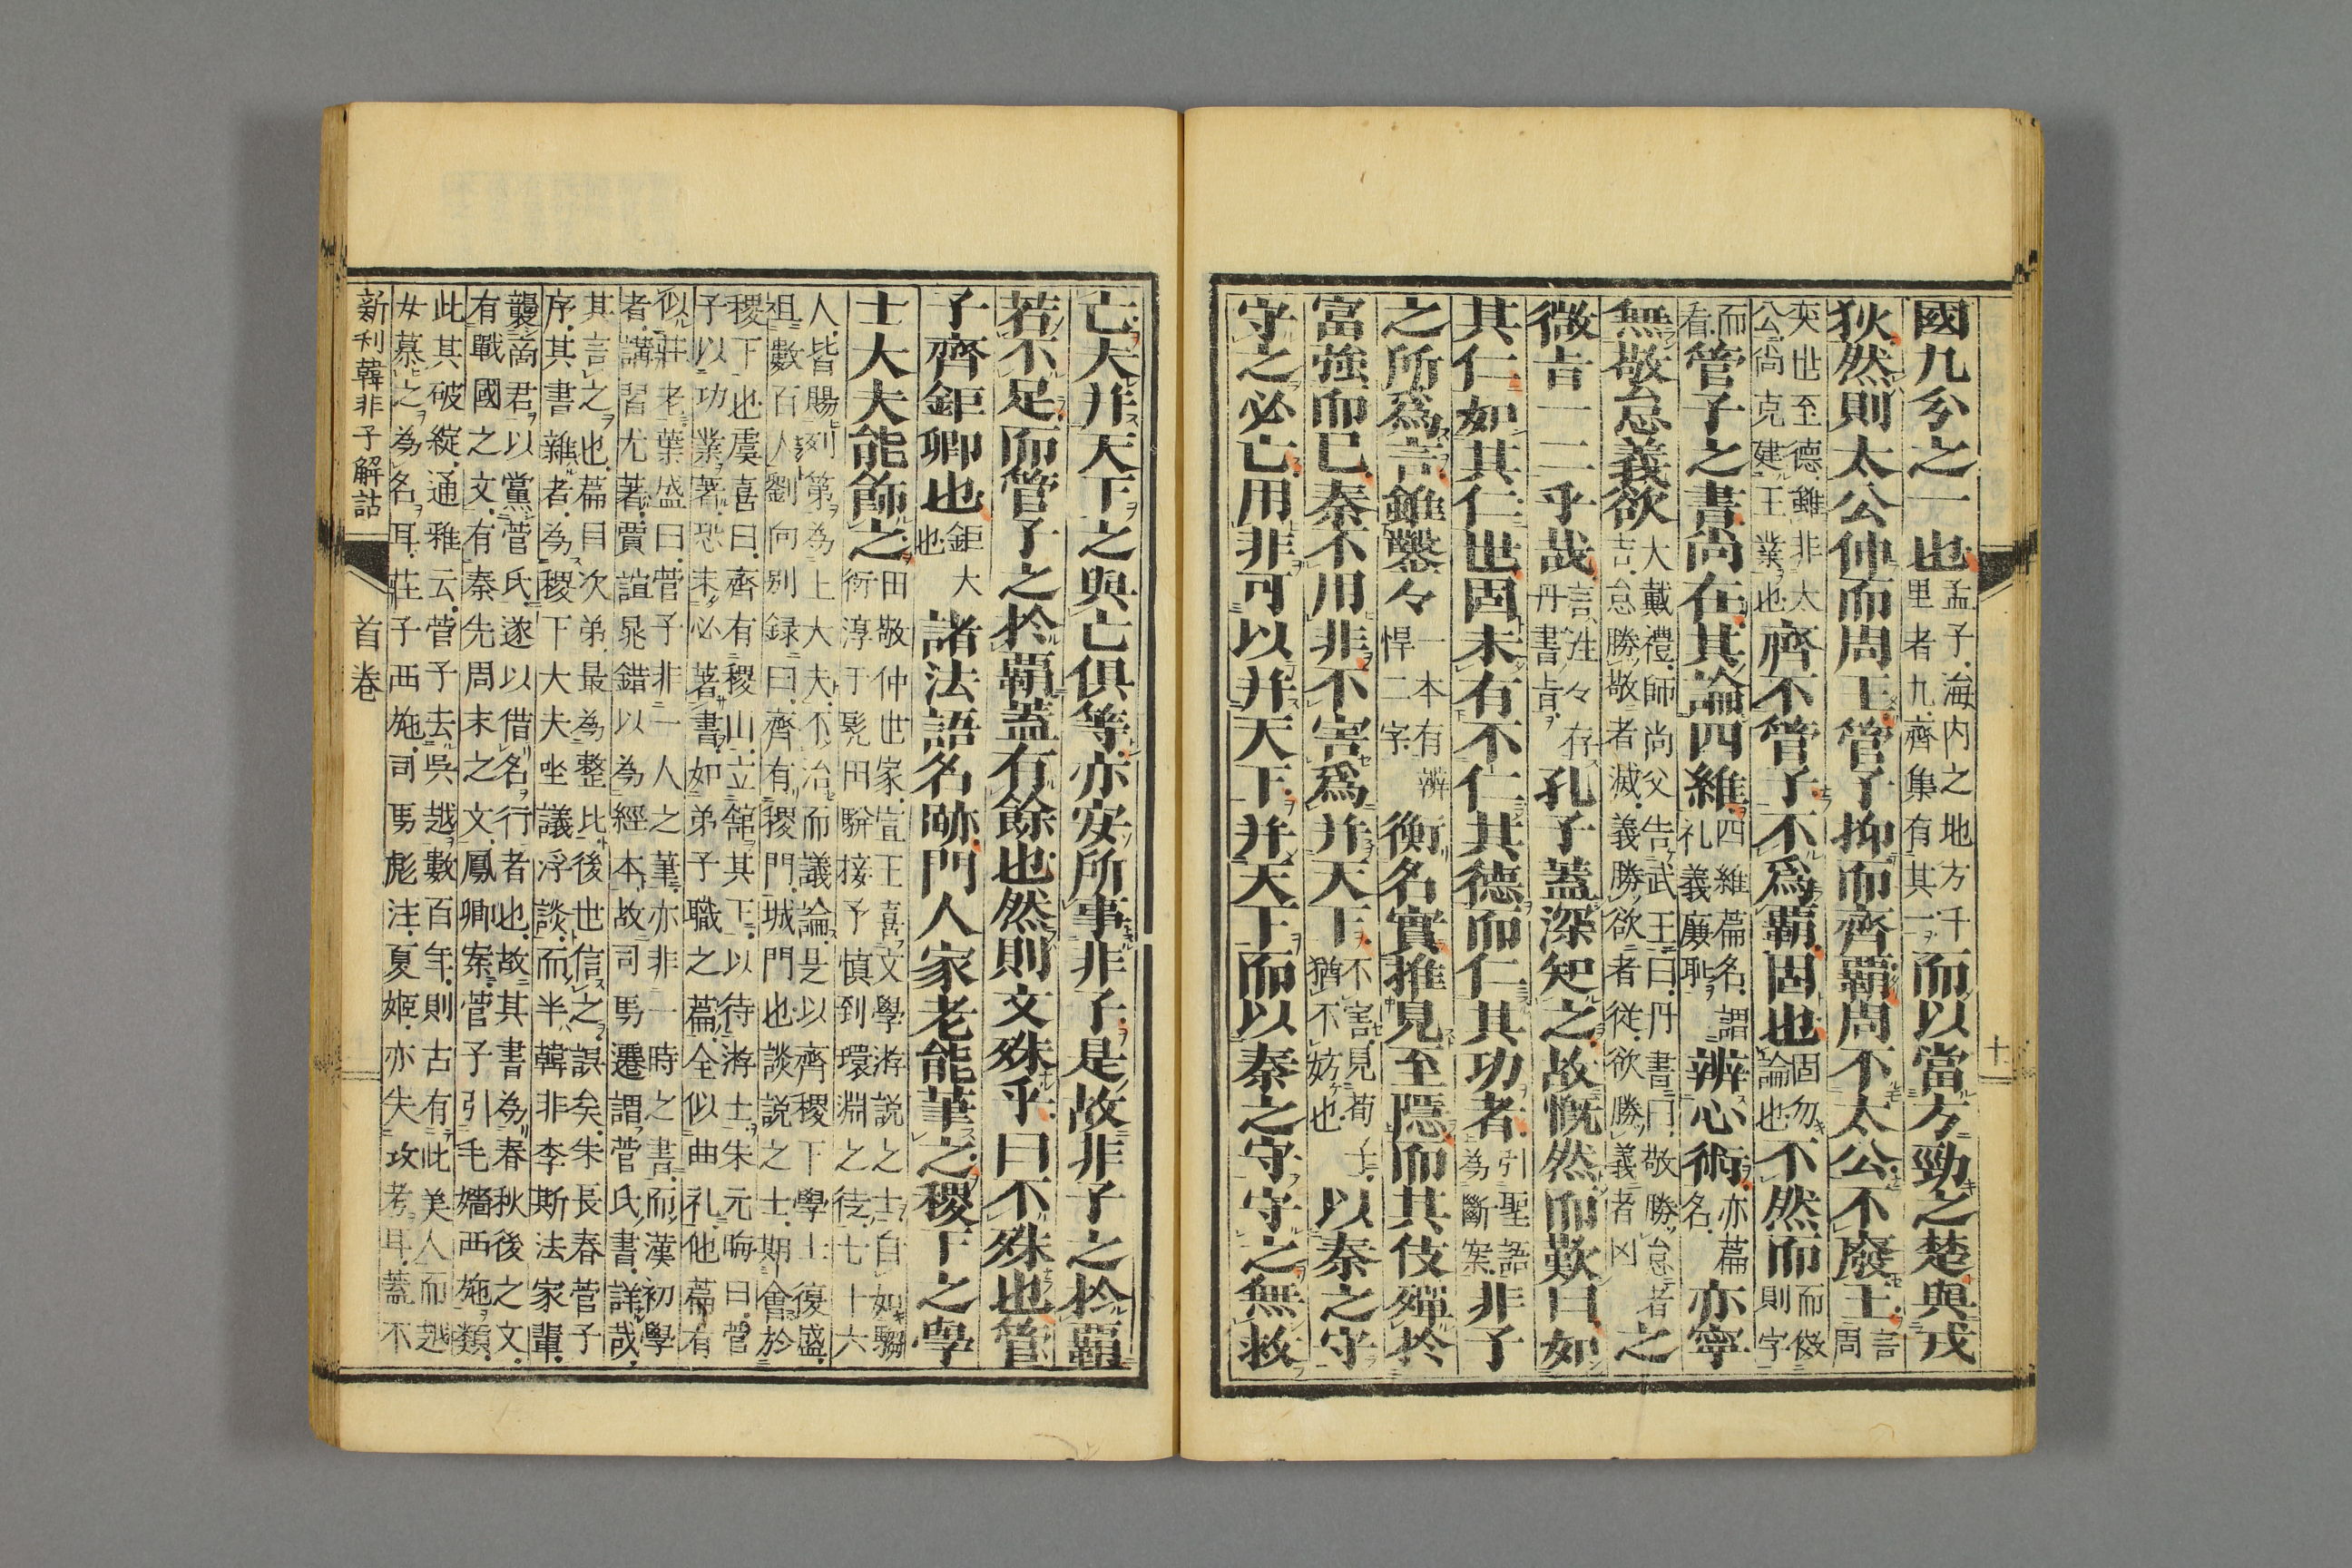 國九分之一也孟子海内之地方千里者九齊集有其一而以當方勁之楚與戎
狄然則太公伸而周王管子抑而齊霸周不太公不廢王言周
夾世至德雖非太公尚克建王業也齊不管子不爲霸固也固勿論也不然而而後則字
而看管子之書尚在其論四維四維篇名謂礼義廉恥辨心術亦篇名亦寧
無敬怠義欲大戴禮師尚父告武王曰丹書曰敬勝怠者吉怠勝敬者滅義勝欲者從欲勝義者凶之
微吉一二乎哉言往々存丹書旨孔子蓋深知之故慨然而歎曰如
其仁如其仁世固未有不仁其德而仁其功者引聖語為斷案非子
之所爲言雖鑿々一本有辨悍二字衡名實推見至隱而其伎殫於
富強而已秦不用非不害爲并天下不害見荀子猶不妨也以秦之守
守之必亡用非可以并天下并天下而以秦之守守之無救
亡夫并天下之與亡俱等亦安所事非子是故非子之於霸
若不足而管子之於霸蓋有餘也然則文殊乎曰不殊也管
子齊鉅卿也鉅大也諸法語名跡門人家老能筆之稷下之學
士大夫能飾之田敬仲世家宣王喜文學游説之士自如騶衍淳于髡田駢接予慎到環淵之徒七十六
人皆賜列第為上大夫不治而議論是以齊稷下學士復盛
祖數百人劉向别録曰齊有稷門城門也談説之士期會於
稷下也虞喜曰齊有稷山立舘其下以待游士朱元晦曰管
子以功業著恐未必著書如弟子職之篇全似曲礼他篇有
似莊老葉盛曰管子非一人之筆亦非一時之書而漢初學
者講習尤著賈誼晁錯以為經本故司馬遷謂管氏書詳哉
其言之也篇目次弟最為整比後世信之誤矣朱長春管子
序其書雜者為稷下大夫坐議浮談而半韓非李斯法家輩
襲商君以黨管氏遂以借名行者也故其書為春秋後之文
有戰國之文有秦先周末之文鳳卿案管子引毛嬙西施類
此其破綻通雅云管子去呉越數百年則古有此美人而越
女慕之為名耳莊子西施司馬彪注夏姬亦失攷考耳蓋不
新刋韓非子解詁
首卷
十